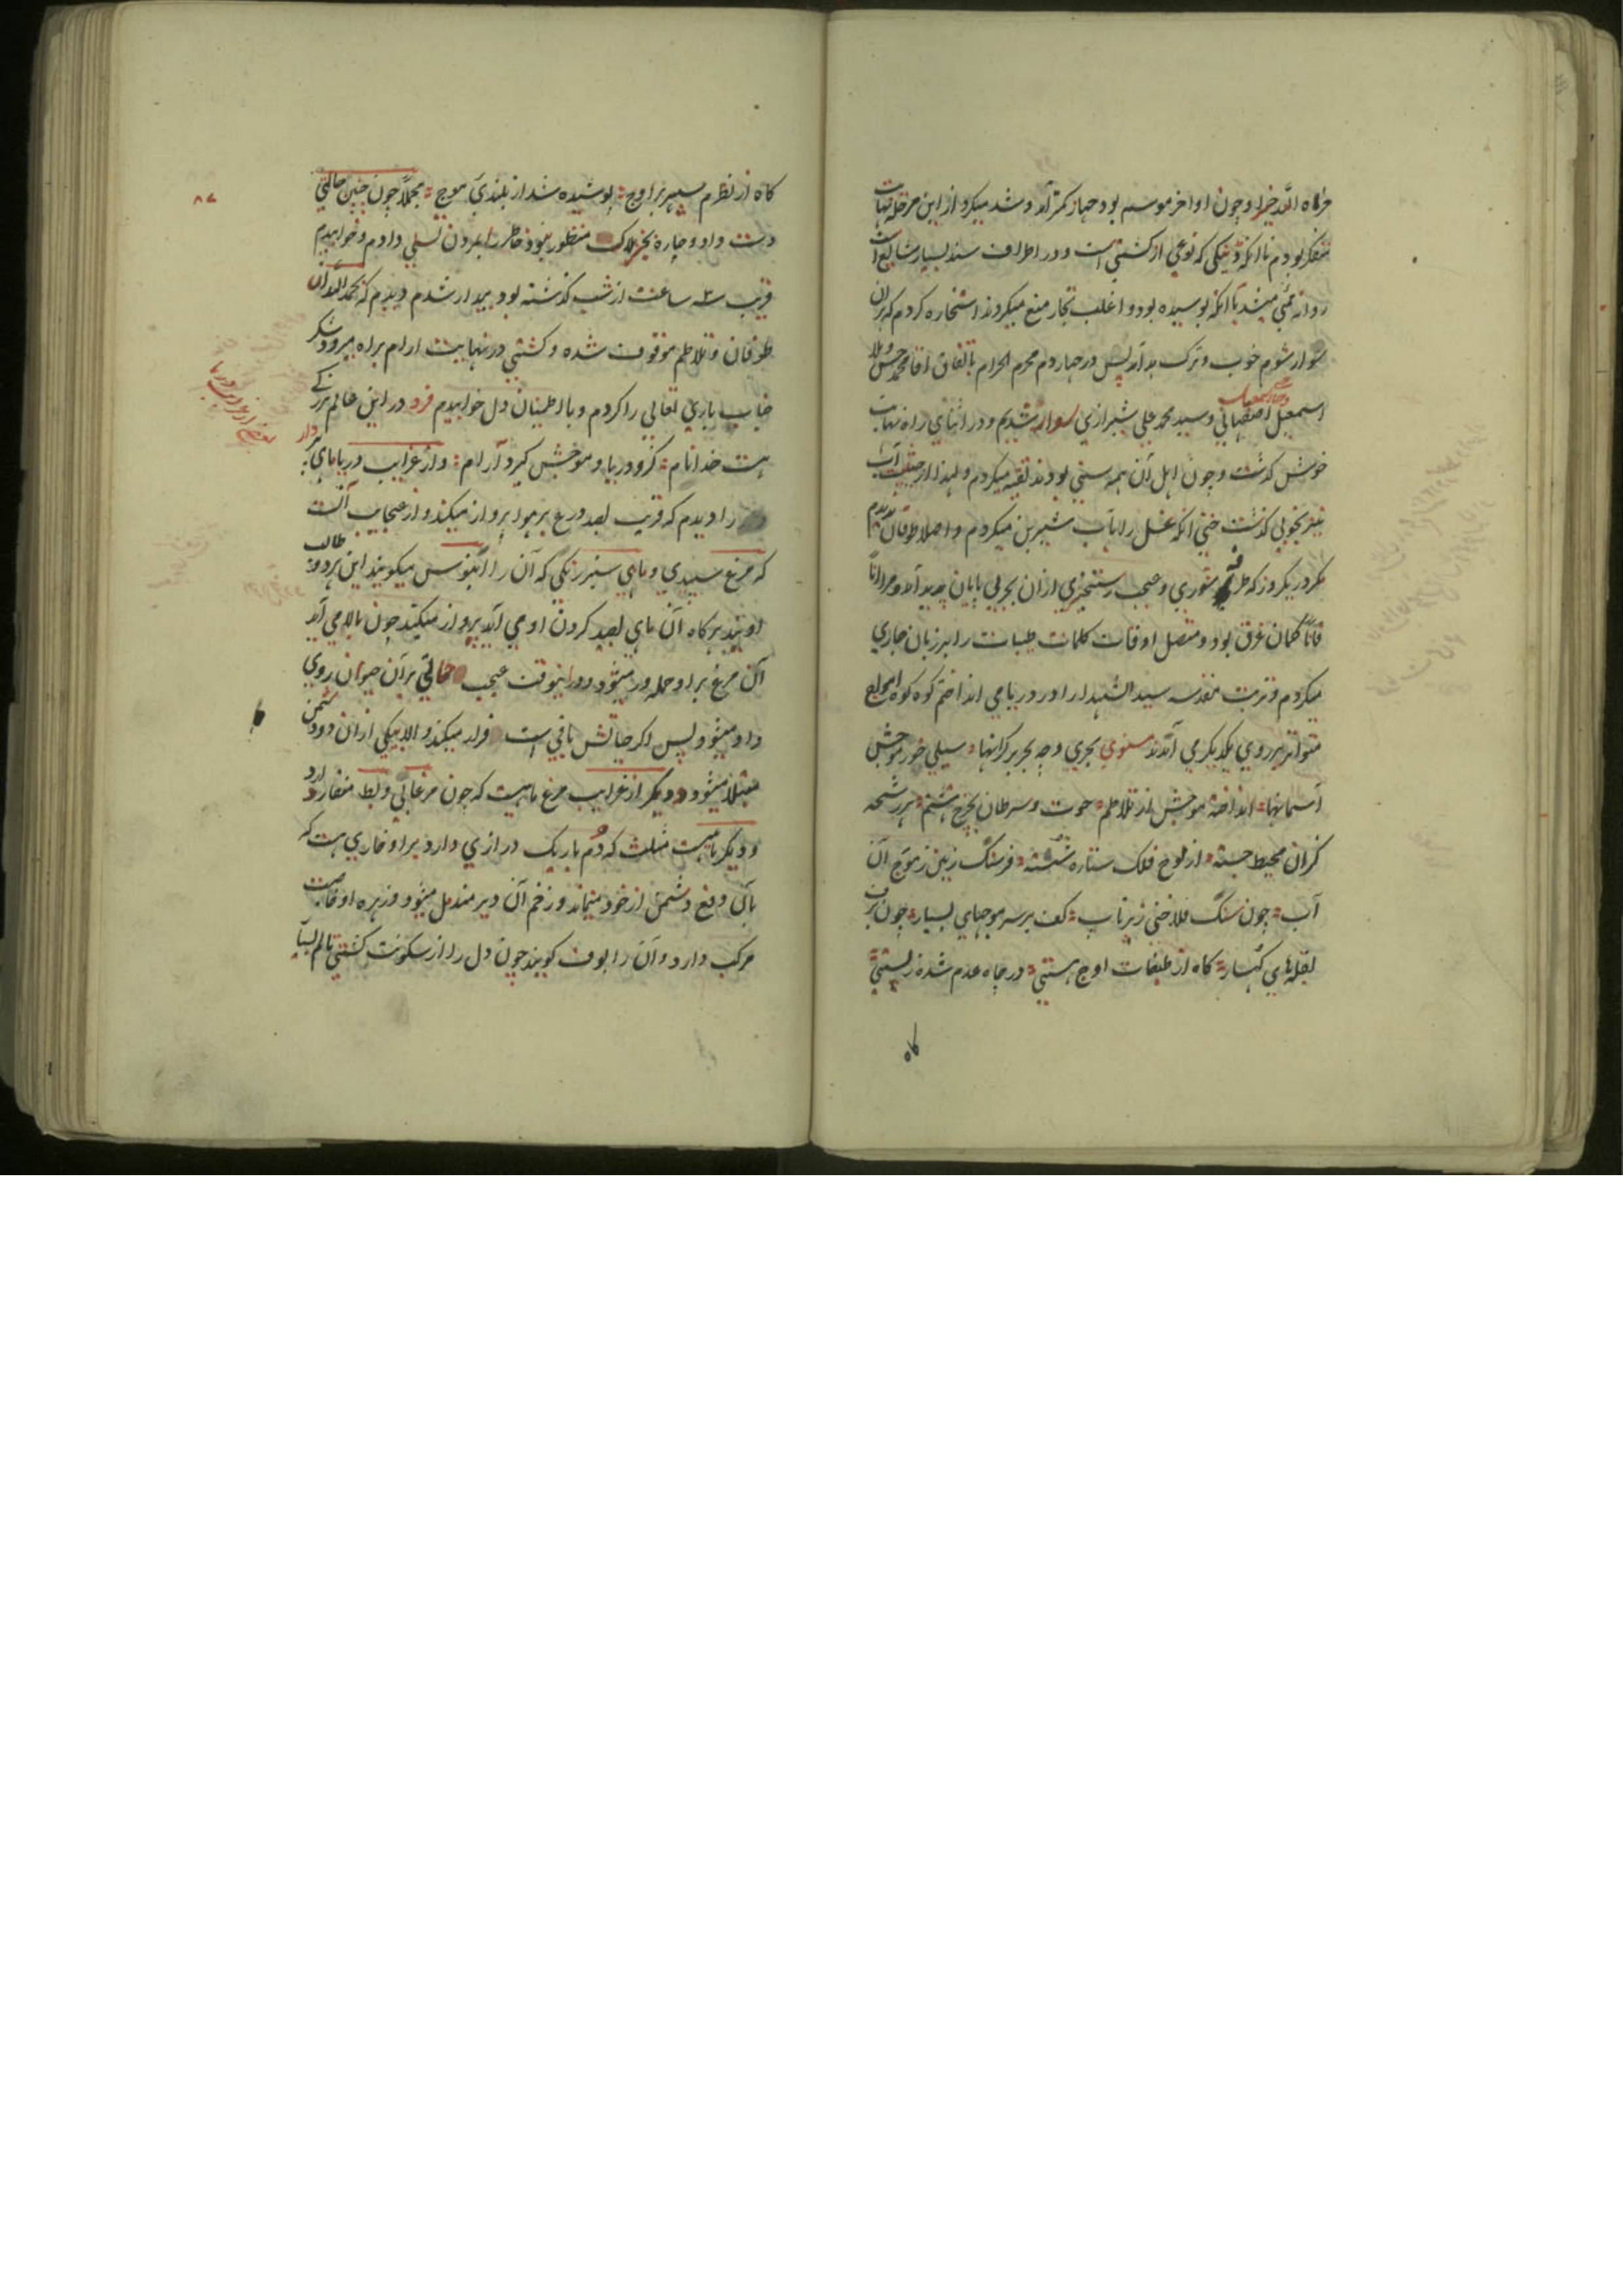 جزاه الله خیرا و چون اواخر موسم بود جهاز کمتر آمد و شد میکرد از این مرحله نهایت
متفکر بودم تا انکه دینکی که نوعی از کشتی است و در اطراف سند بسیار شایع است
روانه بمبئی میشد با انکه بوسیده بود و اغلب تجار منع میکردند استخاره کردم که بران
سوار شوم خوب و ترک بد آمد پس در چهاردم محرم الحرام باتفاق اقا محمد حسن و ملا
اسمعیل اصفهانی و سید محمد علی شیرازی سوار شدیم و در اثنای راه نهایت
خوش گذشت و چون اهل آن همه سنی بودند تقیه میکردم و لهذا از حیثیت آب
نیز بخوبی گذشت حتی انکه غسل را باب شیرین میکردم و اصلا طوفان ندیدم
مکر در یکروز که طرفه شوری و عجب رستخیزی ازان بحر بی پایان پدید آمد و مرا آناً
فاناً گمان غرق بود و متصل اوقات کلمات طیبات را بر زبان جاری
میکردم و تربت مقدسه سید الشهدا را در دریا می انداختم کوه کوه امواج
متواتر بر روی یکدیگر می آمدند مثنوی بحری و چه بحر بیکرانها سیلی خور موجش
آسمانها انداخته موجش از تلاطم حوت و سرطان بچرخ هشتم هر رشحه
کزان محیط جسته از لوح فلک ستاره شسته فرسنگ زمین ز موج آن
آب چون سنگ فلاخنی پرتاب کف بر سر موجهای بسیار چون برف
بقله‌های کهسار گاه از طبقات اوج هستی در چاه عدم شده ز پستی
گاه
۸۷
گاه از نظرم سپهر بر اوج پوشیده شد از بلندی موج مجملاً چون چنین حالتی
دست داد و چاره بجز هلاک منظور نبود خاطر را بمردن تسلی دادم و خوابیدم
قریب ۳ ساعت از شب گذشته بود بیدار شدم دیدم که بحمد الله آن
طوفان و تلاطم موقوف شده و کشتی در نهایت ارام براه میرود شکر
جناب باری تعالی را کردم و با اطمینان دل خوابیدم فرد در این عالم بزرگی
هست خدا نام کزو دریا و موجش گیرد آرام و از غرایب دریا ماهی پردار
را دیدم که قریب بصد درع بر هوا پرواز میکند و از عجایب آنست
که مرغ سپیدی و ماهی سبز رنگی که آن را انبوس میگویند این هردو طالب
اویند هرگاه آن ماهی بصید کردن او می آید پرواز میکند چون بالا می آید
آن مرغ بر او حمله ور میشود و در اینوقت عجب حالتی بر آن حیوان روی
داد میشود پس اگر حیاتش باقی است فرار میکند و الا بیکی ازان دو دشمن
مبتلا میشود و دیگر از غرایب مرغ ماهیست که چون مرغابی و بط منقار دارد
و دیگر ماهیست مثلث که دم باریک درازی دارد بر او خاری هست که
بآن دفع دشمن از خود مینماید و زخم آن دیر مندمل میشود و زهره او خاصیت
مرکب دارد و آن را بوف گویند چون دل را از سکونت کشتی تالم بسیار